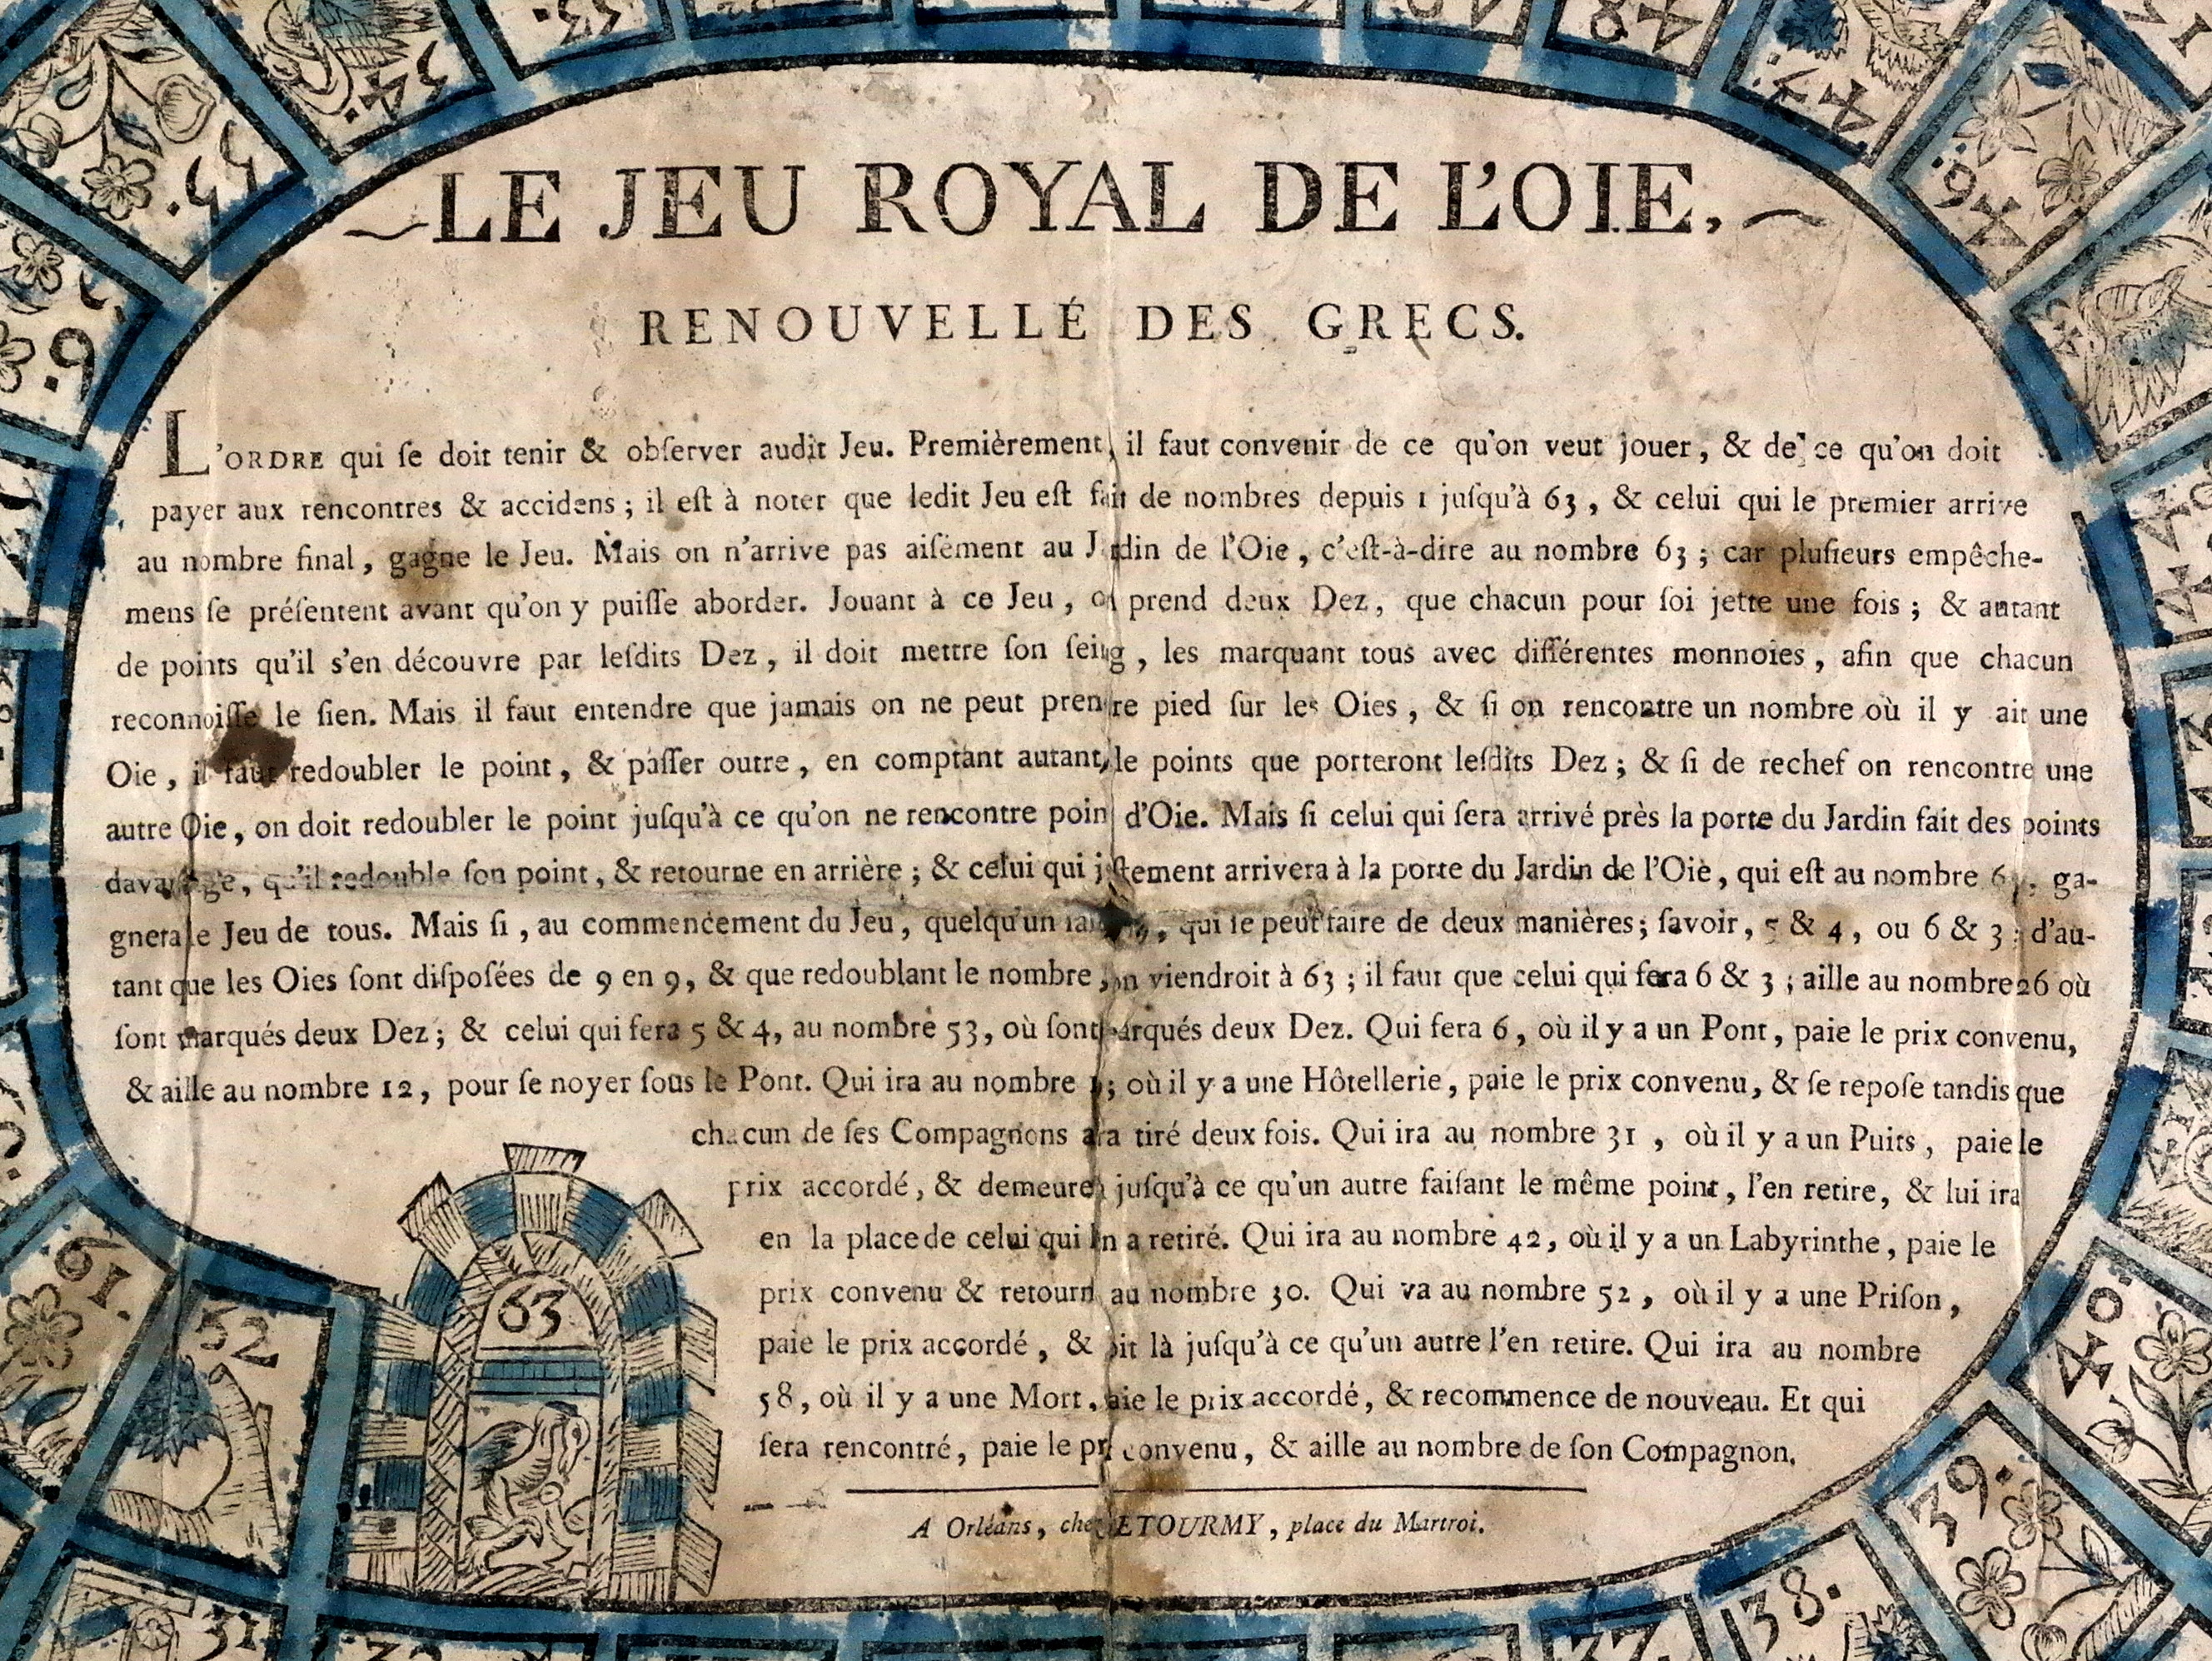 LE JEU ROYAL DE L'OIE,
RENOUVELLÉ DES GRECS.
L'ORDRE qui ſe doit tenir & obſerver audit Jeu. Premièrement, il faut convenir de ce qu'on veut jouer, & de ce qu'on doit
payer aux rencontres & accidens ; il eſt à noter que ledit Jeu eſt fait de nombres depuis 1 juſqu'à 63, & celui qui le premier arrive
au nombre final, gagne le Jeu. Mais on n'arrive pas aiſément au Jardin de l'Oie, c'eſt-à-dire au nombre 63 ; car pluſieurs empêche-
mens ſe préſentent avant qu'on y puiſſe aborder. Jouant à ce Jeu, on prend deux Dez, que chacun pour ſoi jette une fois ; & autant
de points qu'il s'en découvre par leſdits Dez, il doit mettre ſon ſeing, les marquant tous avec différentes monnoies, afin que chacun
reconnoiſſe le ſien. Mais il faut entendre que jamais on ne peut prendre pied ſur les Oies, & ſi on rencontre un nombre où il y ait une
Oie, il faut redoubler le point, & paſſer outre, en comptant autant de points que porteront leſdits Dez ; & ſi de rechef on rencontre une
autre Oie, on doit redoubler le point juſqu'à ce qu'on ne rencontre point d'Oie. Mais ſi celui qui ſera arrivé près la porte du Jardin fait des points
davantage, qu'il redouble ſon point, & retourne en arrière ; & celui qui juſtement arrivera à la porte du Jardin de l'Oie, qui eſt au nombre 63, ga-
gnera le Jeu de tous. Mais ſi, au commencement du Jeu, quelqu'un , qui ſe peut faire de deux manières ; ſavoir, 5 & 4, ou 6 & 3 ; d'au-
tant que les Oies ſont diſpoſées de 9 en 9, & que redoublant le nombre, on viendroit à 63 ; il faut que celui qui fera 6 & 3 ; aille au nombre 26 où
ſont marqués deux Dez ; & celui qui fera 5 & 4, au nombre 53, où ſont marqués deux Dez. Qui fera 6, où il y a un Pont, paie le prix convenu,
& aille au nombre 12, pour ſe noyer ſous le Pont. Qui ira au nombre ; où il y a une Hôtellerie, paie le prix convenu, & ſe repoſe tandis que
chacun de ſes Compagnons aura tiré deux fois. Qui ira au nombre 31, où il y a un Puits, paie le
prix accordé, & demeure juſqu'à ce qu'un autre faiſant le même point, l'en retire, & lui ira
en la place de celui qui l'en a retiré. Qui ira au nombre 42, où il y a un Labyrinthe, paie le
prix convenu & retourne au nombre 30. Qui va au nombre 52, où il y a une Priſon,
paie le prix accordé, & ſoit là juſqu'à ce qu'un autre l'en retire. Qui ira au nombre
58, où il y a une Mort, paie le prix accordé, & recommence de nouveau. Et qui
ſera rencontré, paie le prix convenu, & aille au nombre de ſon Compagnon.
A Orléans, chez LETOURMY, place du Martroi.
63
52
61.
31
40.
39.
38.
37.
46.
47.
48
53.
54.
55.